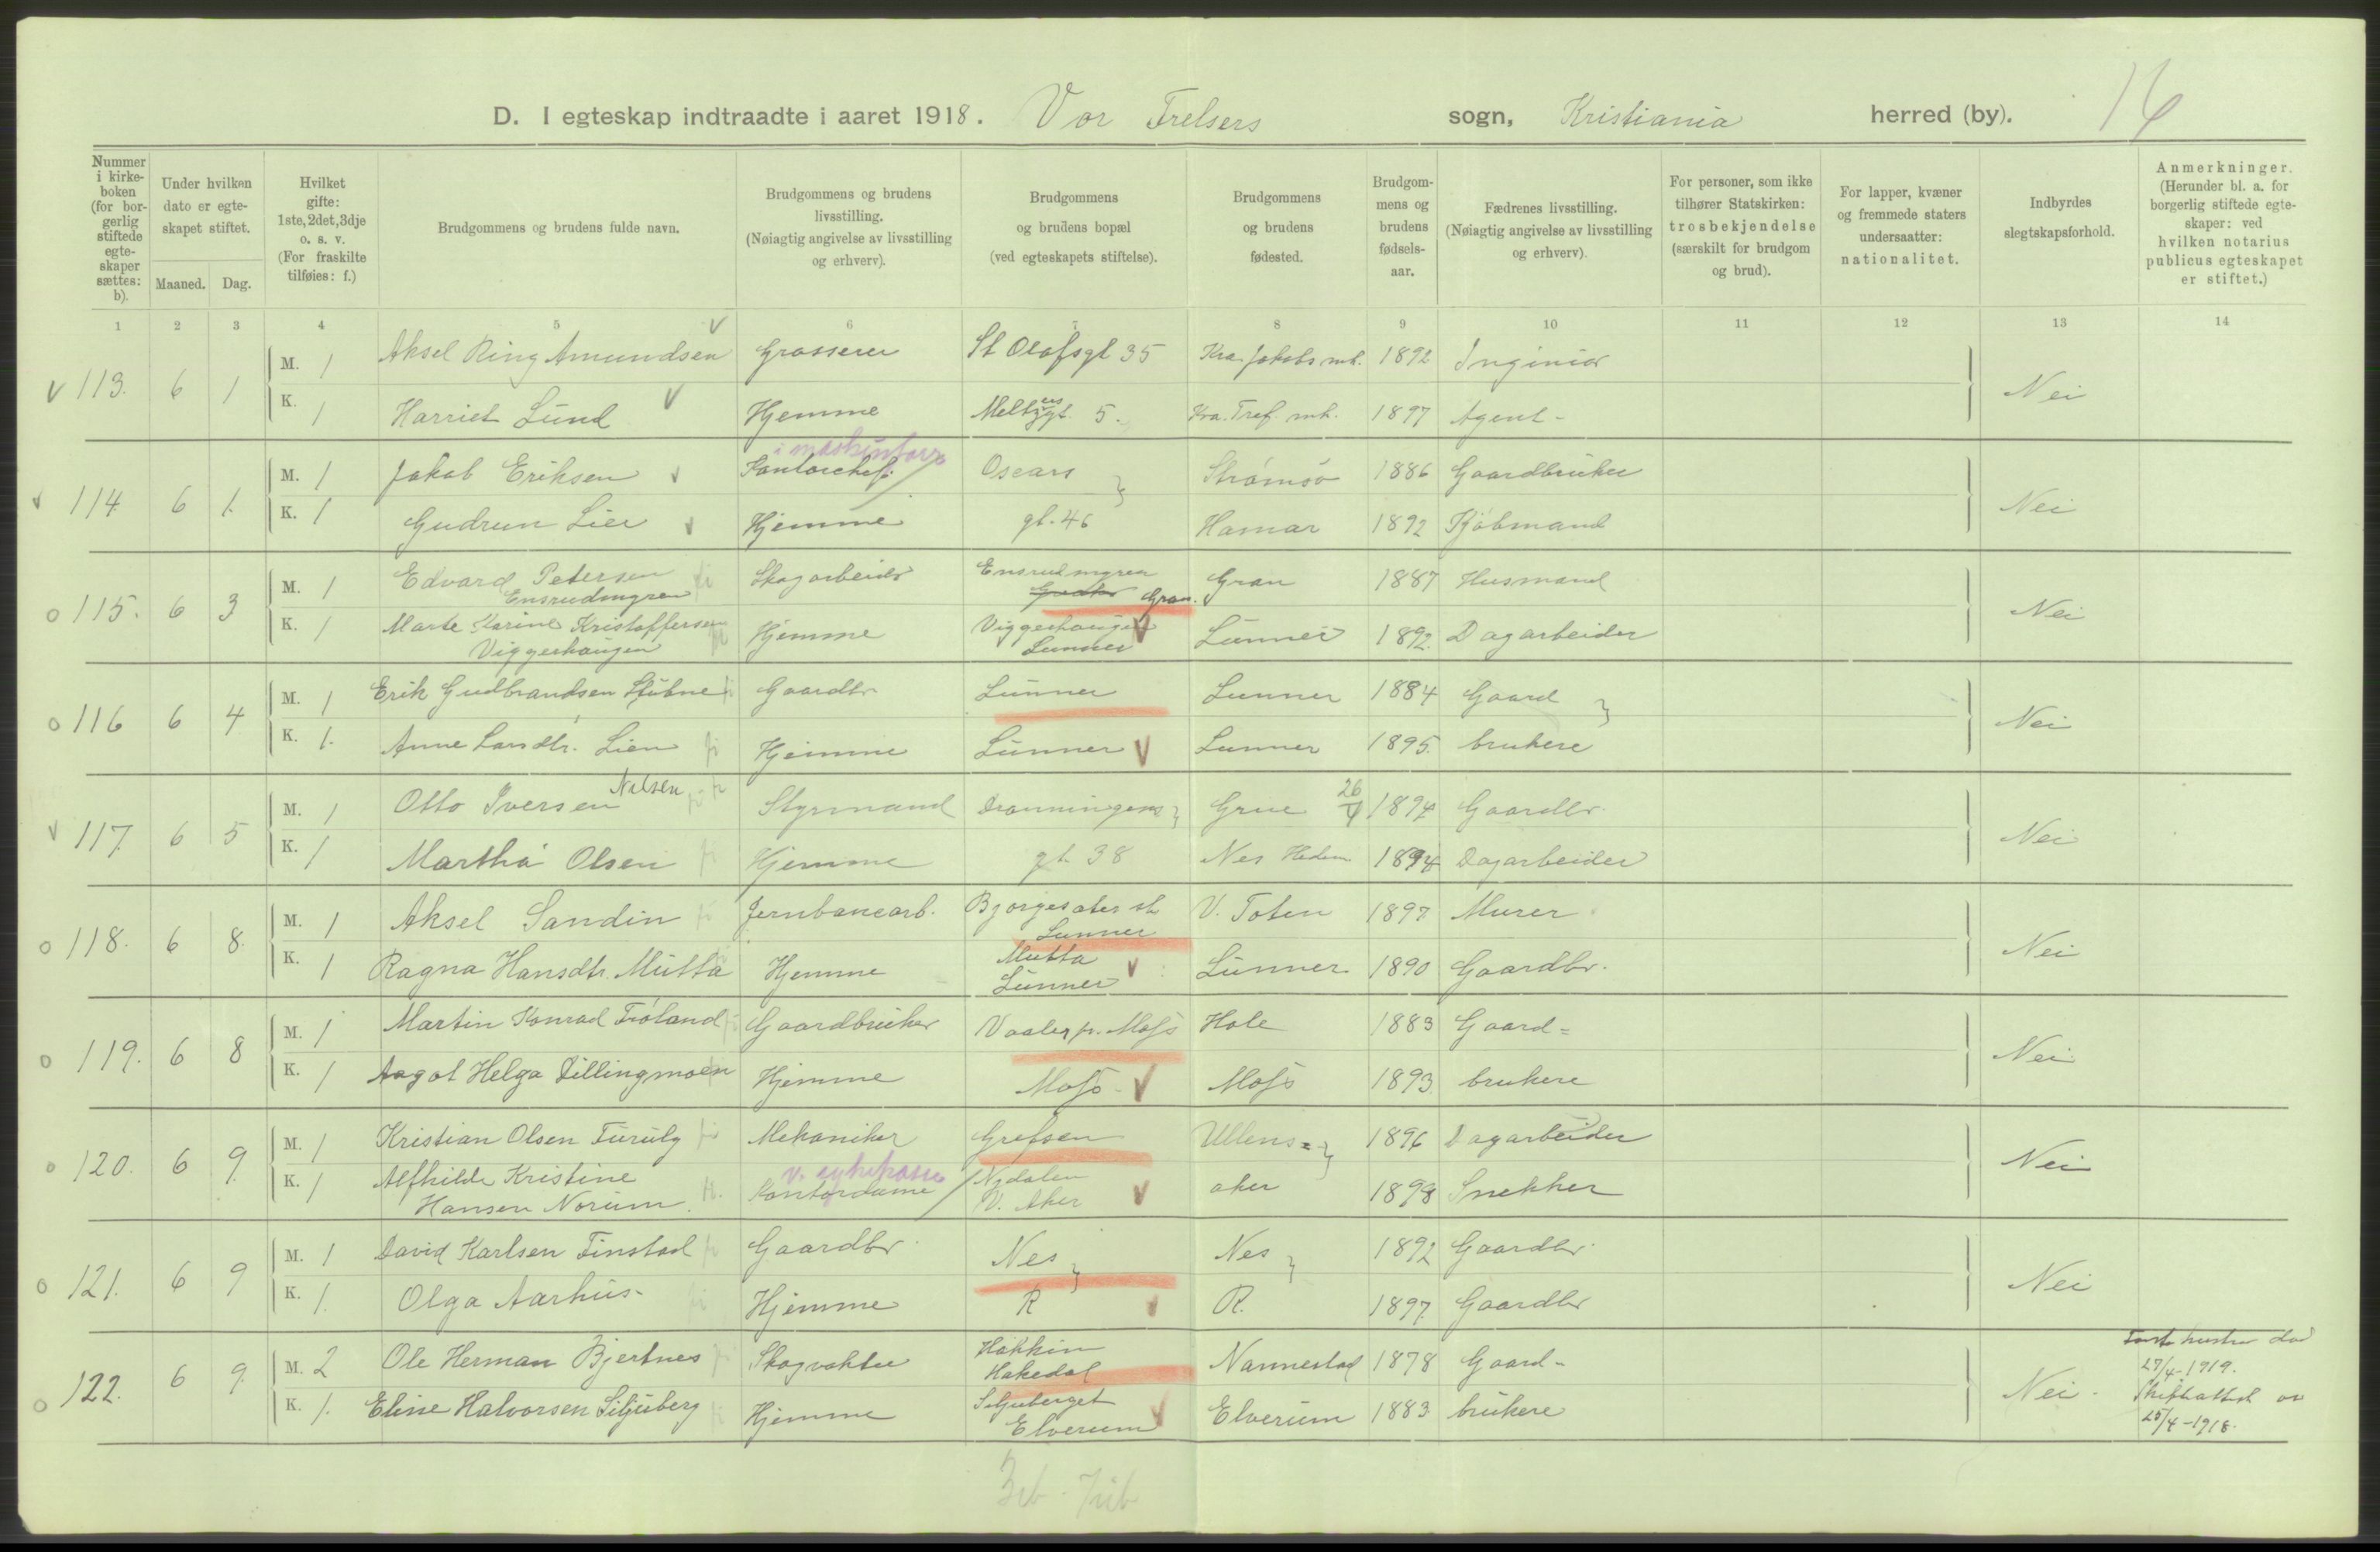 D. I egteskap indtraadte i aaret 1918. Vor Frelsers sogn, Kristiania herred (by). 16
Nummer i kirkeboken (for borgerlig stiftede egteskaper sættes: b).
Under hvilken dato er egteskapet stiftet.
Maaned. Dag.
Hvilket gifte: 1ste, 2det, 3dje o. s. v. (For fraskilte tilføies: f.)
Brudgommens og brudens fulde navn.
Brudgommens og brudens livsstilling. (Nøiagtig angivelse av livsstilling og erhverv).
Brudgommens og brudens bopæl (ved egteskapets stiftelse).
Brudgommens og brudens fødested.
Brudgommens og brudens fødselsaar.
Fædrenes livsstilling. (Nøiagtig angivelse av livsstilling og erhverv).
For personer, som ikke tilhører Statskirken: trosbekjendelse (særskilt for brudgom og brud).
For lapper, kvæner og fremmede staters undersaatter: nationalitet.
Indbyrdes slegtskapsforhold.
Anmerkninger. (Herunder bl. a. for borgerlig stiftede egteskaper: ved hvilken notarius publicus egteskapet er stiftet.)
1 2 3 4 5 6 7 8 9 10 11 12 13 14
113. 6 1 M. 1 Aksel Ring Amundsen Grosserer St Olafsgt 35 Kra. Jakobs mh. 1892 Inginiør Nei
K. 1 Harriet Lund Hjemme Meltzersgt. 5. Kra. Tref. mh. 1897 Agent-
i maskinforr.
114 6 1. M. 1 Jakob Eriksen Kontorchef. Oscars } Strømsø 1886 Gaardbruker Nei
K. 1 Gudrun Lier Hjemme gt. 46 Hamar 1892 Kjøbmand
115. 6 3 M. 1 Edvard Petersen Skogarbeider Ensrudmyren Gran 1887 Husmand Nei
Ensrudmyren Gran.
K. 1 Marte Karine Kristoffersen Hjemme Viggerhaugen Lunner 1892. Dagarbeider
Viggerhaugen Lunner
116 6 4 M. 1 Erik Gudbrandsen Stubne Gaardbr Lunner Lunner 1884 Gaard } Nei
K. 1. Anne Larsdtr. Lien Hjemme Lunner Lunner 1895. brukere
Nilsen 26
117. 6 5 M. 1 Otto Iversen Styrmand Dronningens } Grue 1894 Gaardbr. Nei
K. 1 Martha Olsen Hjemme gt. 38 Nes Hedm 1894 Dagarbeider
118. 6 8. M. 1 Aksel Sandin Jernbanearb. Bjørgesæter st. V. Toten 1897 Murer Nei
Lunner
K. 1 Ragna Hansdtr. Mutta Hjemme Mutta Lunner 1890 Gaardbr.
Lunner
119. 6 8 M. 1 Martin Konrad Frøland Gaardbruker Vaaler pr. Moss Hole 1883 Gaard= Nei
K. 1 Aagot Helga Dillingmoen Hjemme Moss- Moss 1893 brukere
120. 6 9. M. 1 Kristian Olsen Furuly Mekaniker Grefsen Ullens= } 1896 Dagarbeider Nei
v. sykekasse
K. 1 Alfhilde Kristine Kontordame Nydalen aker 1898 Snekker
Hansen Norum. V. Aker
121. 6 9 M. 1 David Karlsen Finstad Gaardbr. Nes } Nes } 1892 Gaardbr. Nei
K. 1. Olga Aarhus- Hjemme R R. 1897. Gaardbr
122. 6 9. M. 2 Ole Herman Bjertnes Skogvokter Hakkim Nannestad 1878 Gaard- Nei. hustru død
Hakedal 27/4-1919.
K. 1. Eline Halvorsen Siljuberg Hjemme Siljuberget Elverum 1883 brukere Skifteattest av
Elverum 25/4-1918.